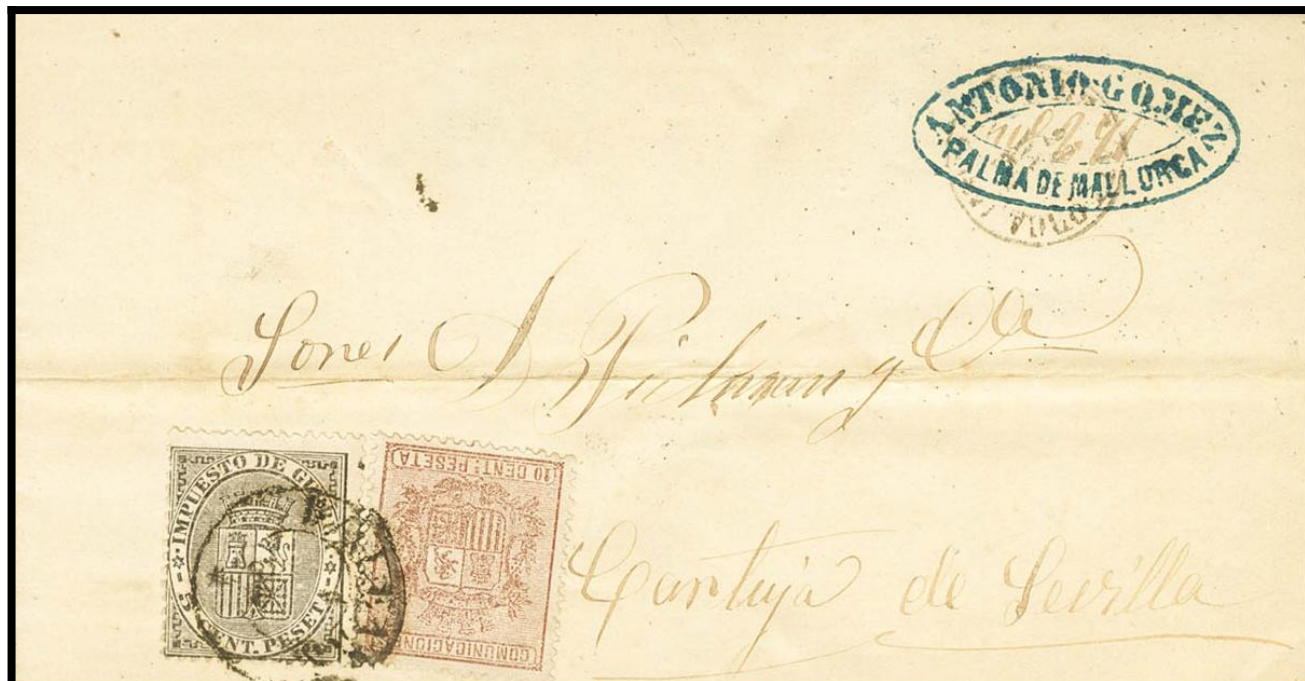 ANTONIO GOMEZ
PALMA DE MALLORCA
Sores A Pickman y Cia
IMPUESTO DE GUERRA
5 CENT. PESETA
10 CENT. PESETA
COMUNICACIONES
Cartuja de Sevilla